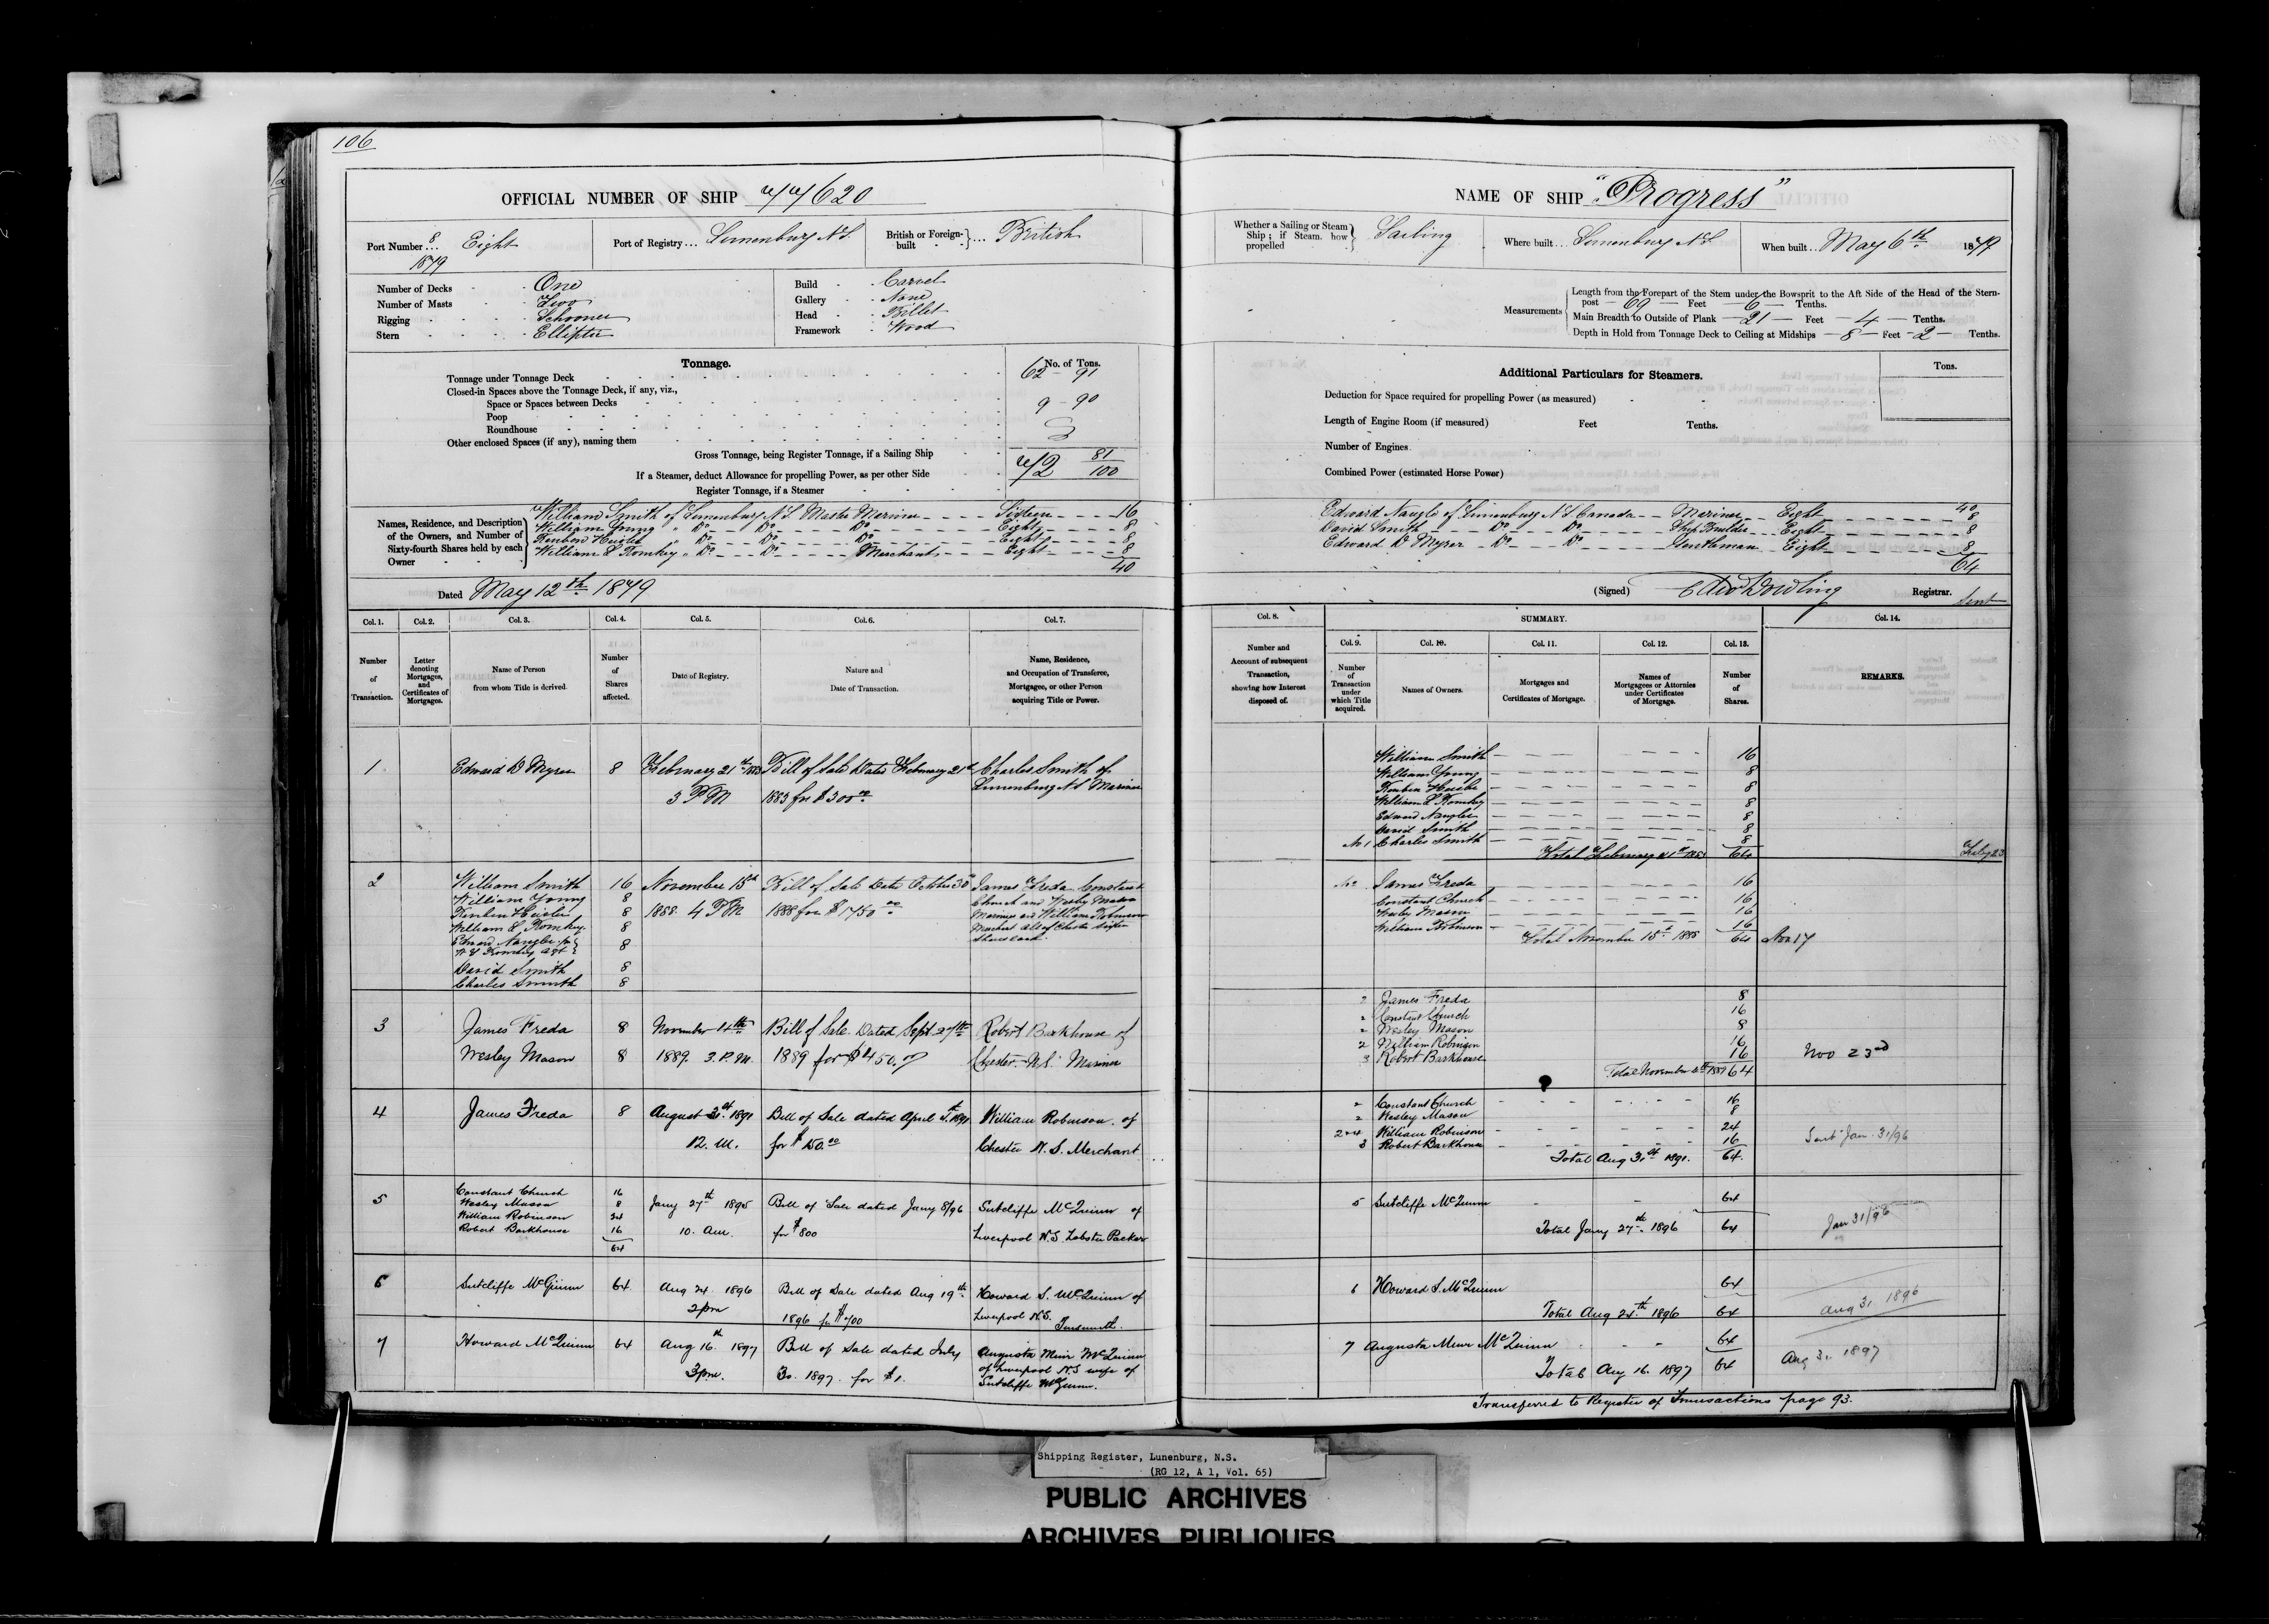 106
OFFICIAL NUMBER OF SHIP 77620
Port Number 8/1879 ... Eight
Port of Registry ... Lunenburg N.S.
British or Foreign-built } ... British
Number of Decks One
Number of Masts Two
Rigging Schooner
Stern Elliptic
Build Carvel
Gallery None
Head Billet
Framework Wood
Tonnage.
No. of Tons.
Tonnage under Tonnage Deck 62 – 91
Closed-in Spaces above the Tonnage Deck, if any, viz.,
Space or Spaces between Decks 9 – 90
Poop
Roundhouse
Other enclosed Spaces (if any), naming them
Gross Tonnage, being Register Tonnage, if a Sailing Ship 72 81/100
If a Steamer, deduct Allowance for propelling Power, as per other Side
Register Tonnage, if a Steamer
Names, Residence, and Description of the Owners, and Number of Sixty-fourth Shares held by each Owner
William Smith of Lunenburg N.S. Master Mariner Sixteen 16
William Young " Do Do Do Eight 8
Reuben Heisler " Do Do Do Eight 8
William L Romkey " Do Do Merchant Eight 8
40
Dated May 12th 1879
Col. 1. Col. 2. Col. 3. Col. 4. Col. 5. Col. 6. Col. 7.
Number of Transaction.
Letter denoting Mortgages, and Certificates of Mortgages.
Name of Person from whom Title is derived.
Number of Shares affected.
Date of Registry.
Nature and Date of Transaction.
Name, Residence, and Occupation of Transferee, Mortgagee, or other Person acquiring Title or Power.
1 Edward D Myrer 8 February 21st 1883 Bill of Sale Dated February 21st Charles Smith of
3 PM 1883 for $300.00 Lunenburg N.S Mariner
2 William Smith 16 November 15th Bill of Sale Date October 30th James Freda Constant
William Young 8 Church and Wesley Mason
Reuben Heisler 8 1888 4 PM 1888 for $1750.00 Mariners and William Robinson
William L Romkey 8 Merchant all of Chester sixteen
Edward Naugle pr 8 Shares each
W L Romkey agt
David Smith 8
Charles Smith 8
3 James Freda 8 November 14th Bill of Sale Dated Sept 27th Robert Barkhouse of
Wesley Mason 8 1889. 3. P.M. 1889 for $450.00 Chester N.S. Mariner
4 James Freda 8 August 31st 1891 Bill of Sale dated April 1891 William Robinson of
12. M. for $150.00 Chester N. S. Merchant
5 Constant Church 16
Wesley Mason 8 Jany 27th 1895 Bill of Sale dated Jany 8/96 Sutcliffe McQuinn of
William Robinson 24
Robert Barkhouse 16 10. Am. for $800 Liverpool N.S. Lobster Packer
64
6 Sutcliffe McQuinn 64 Aug 24 1896 Bill of Sale dated Aug 19th Howard S. McQuinn of
2pm 1896 for $700 Liverpool N.S. Tinsmith.
7 Howard McQuinn 64 Aug 16th 1897 Bill of Sale dated July Augusta Muir McQuinn
3pm. 30. 1897. for $1. of Liverpool N.S wife of
Sutcliffe McQuinn.
NAME OF SHIP "Progress"
Whether a Sailing or Steam Ship; if Steam, how propelled } Sailing
Where built ... Lunenburg N.S
When built ... May 6th 1879
Measurements
Length from the Forepart of the Stem under the Bowsprit to the Aft Side of the Head of the Stern-
post – 69 – Feet – 6 – Tenths.
Main Breadth to Outside of Plank – 21 – Feet – 4 – Tenths.
Depth in Hold from Tonnage Deck to Ceiling at Midships – 8 – Feet – 2 – Tenths.
Additional Particulars for Steamers.
Tons.
Deduction for Space required for propelling Power (as measured)
Length of Engine Room (if measured) Feet Tenths.
Number of Engines
Combined Power (estimated Horse Power)
40
Edward Naugle of Lunenburg N.S Canada Mariner Eight 8
David Smith Do Do Ship Builder Eight 8
Edward D Myrer Do Do Gentleman Eight 8
64
(Signed) Dowling Registrar.
Sent
Col. 8. SUMMARY. Col. 14.
Col. 9. Col. 10. Col. 11. Col. 12. Col. 13.
Number and Account of subsequent Transaction, showing how Interest disposed of.
Number of Transaction under which Title acquired.
Names of Owners.
Mortgages and Certificates of Mortgage.
Names of Mortgagees or Attornies under Certificates of Mortgage.
Number of Shares.
REMARKS.
William Smith 16
William Young 8
Reuben Heisler 8
William L Romkey 8
Edward Naugler 8
David Smith 8
No 1 Charles Smith 8
Total February 21st 1883 64
No 2 James Freda 16
Constant Church 16
Wesley Mason 16
William Robinson 16
Total November 15th 1888 64 Nov 17
2 James Freda 8
2 Constant Church 16
2 Wesley Mason 8
2 William Robinson 16
3 Robert Barkhouse 16 Nov 23rd
Total November 14th 1889 64
2 Constant Church 16
2 Wesley Mason 8
2+4 William Robinson 24
3 Robert Barkhouse 16 Sent Jan. 31/96
Total Aug 31st 1891. 64.
5 Sutcliffe McQuinn 64
Total Jany 27th 1896 64 Jan 31/96
6 Howard S. McQuinn 64
Total Aug 24th 1896 64 Aug 31 1896
7 Augusta Muir McQuinn 64
Total Aug 16. 1897 64 Aug 31 1897
Transferred to Register of Transactions page 93.
Shipping Register, Lunenburg, N.S.
(RG 12, A 1, Vol. 65)
PUBLIC ARCHIVES
ARCHIVES PUBLIQUES